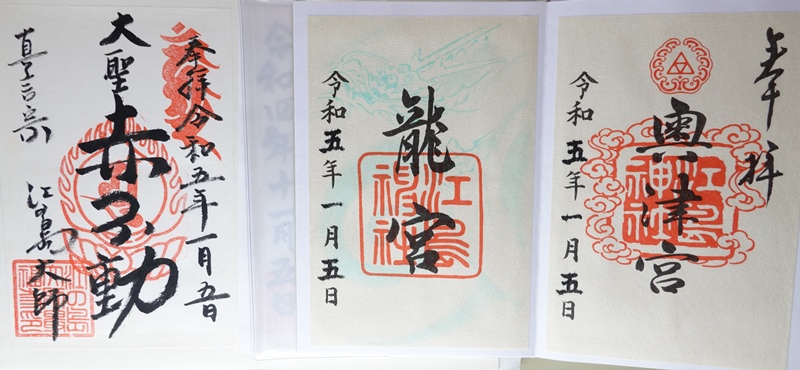 奉拝
奥津宮
江島神社
令和五年一月五日
龍宮
江島神社
令和五年一月五日
令和四年十一月五日
奉拝令和五年一月五日
大聖赤不動
真言宗
江の島大師